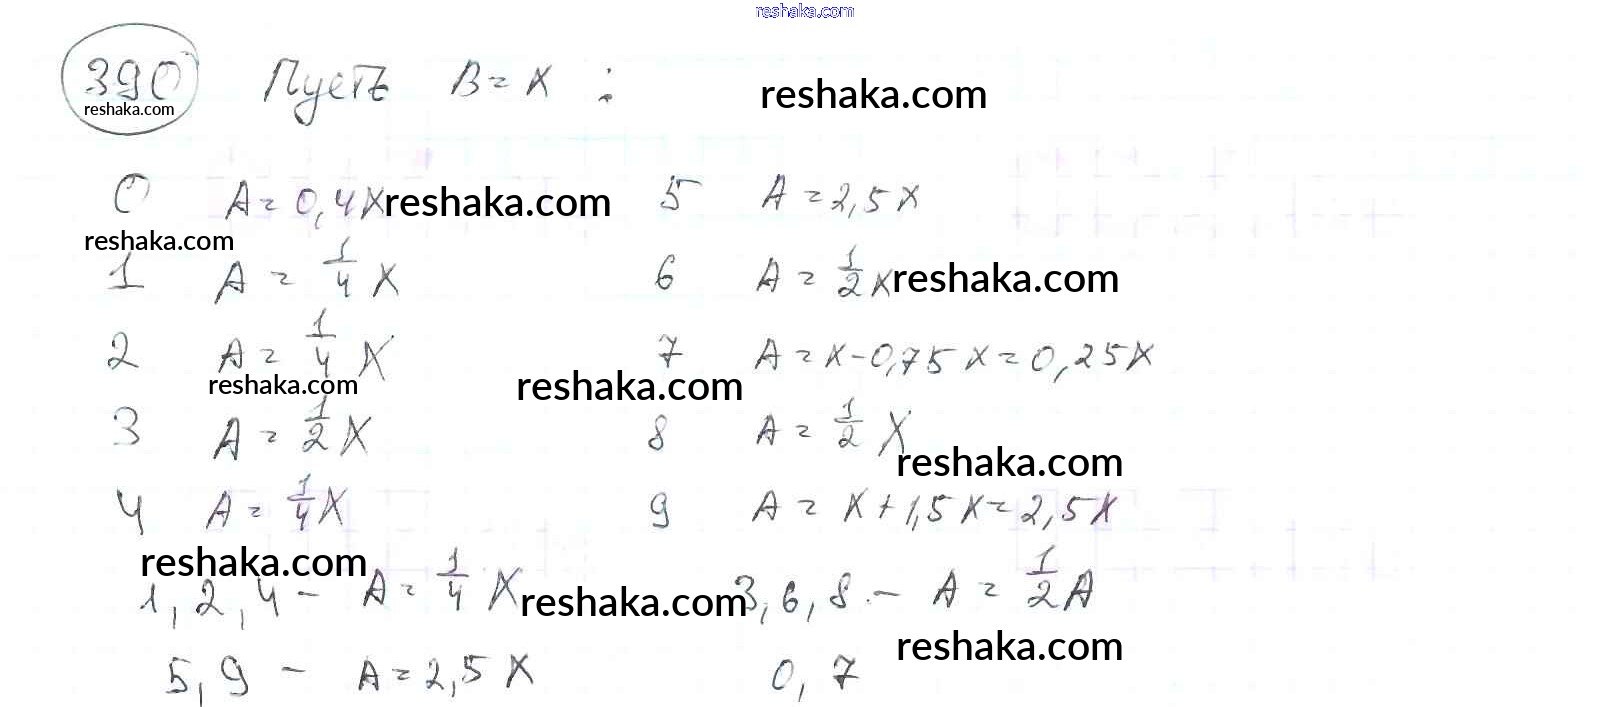 reshaka.com
390 Пусть B = x : reshaka.com
reshaka.com
0 A = 0,4x reshaka.com 5 A = 2,5x
reshaka.com
1 A = 1/4 x 6 A = 1/2 x reshaka.com
2 A = 1/4 x 7 A = x - 0,75x = 0,25x
reshaka.com reshaka.com
3 A = 1/2 x 8 A = 1/2 x
reshaka.com
4 A = 1/4 x 9 A = x + 1,5x = 2,5x
reshaka.com
1, 2, 4 - A = 1/4 x reshaka.com 3, 6, 8 - A = 1/2 A
reshaka.com
5, 9 - A = 2,5x 0, 7